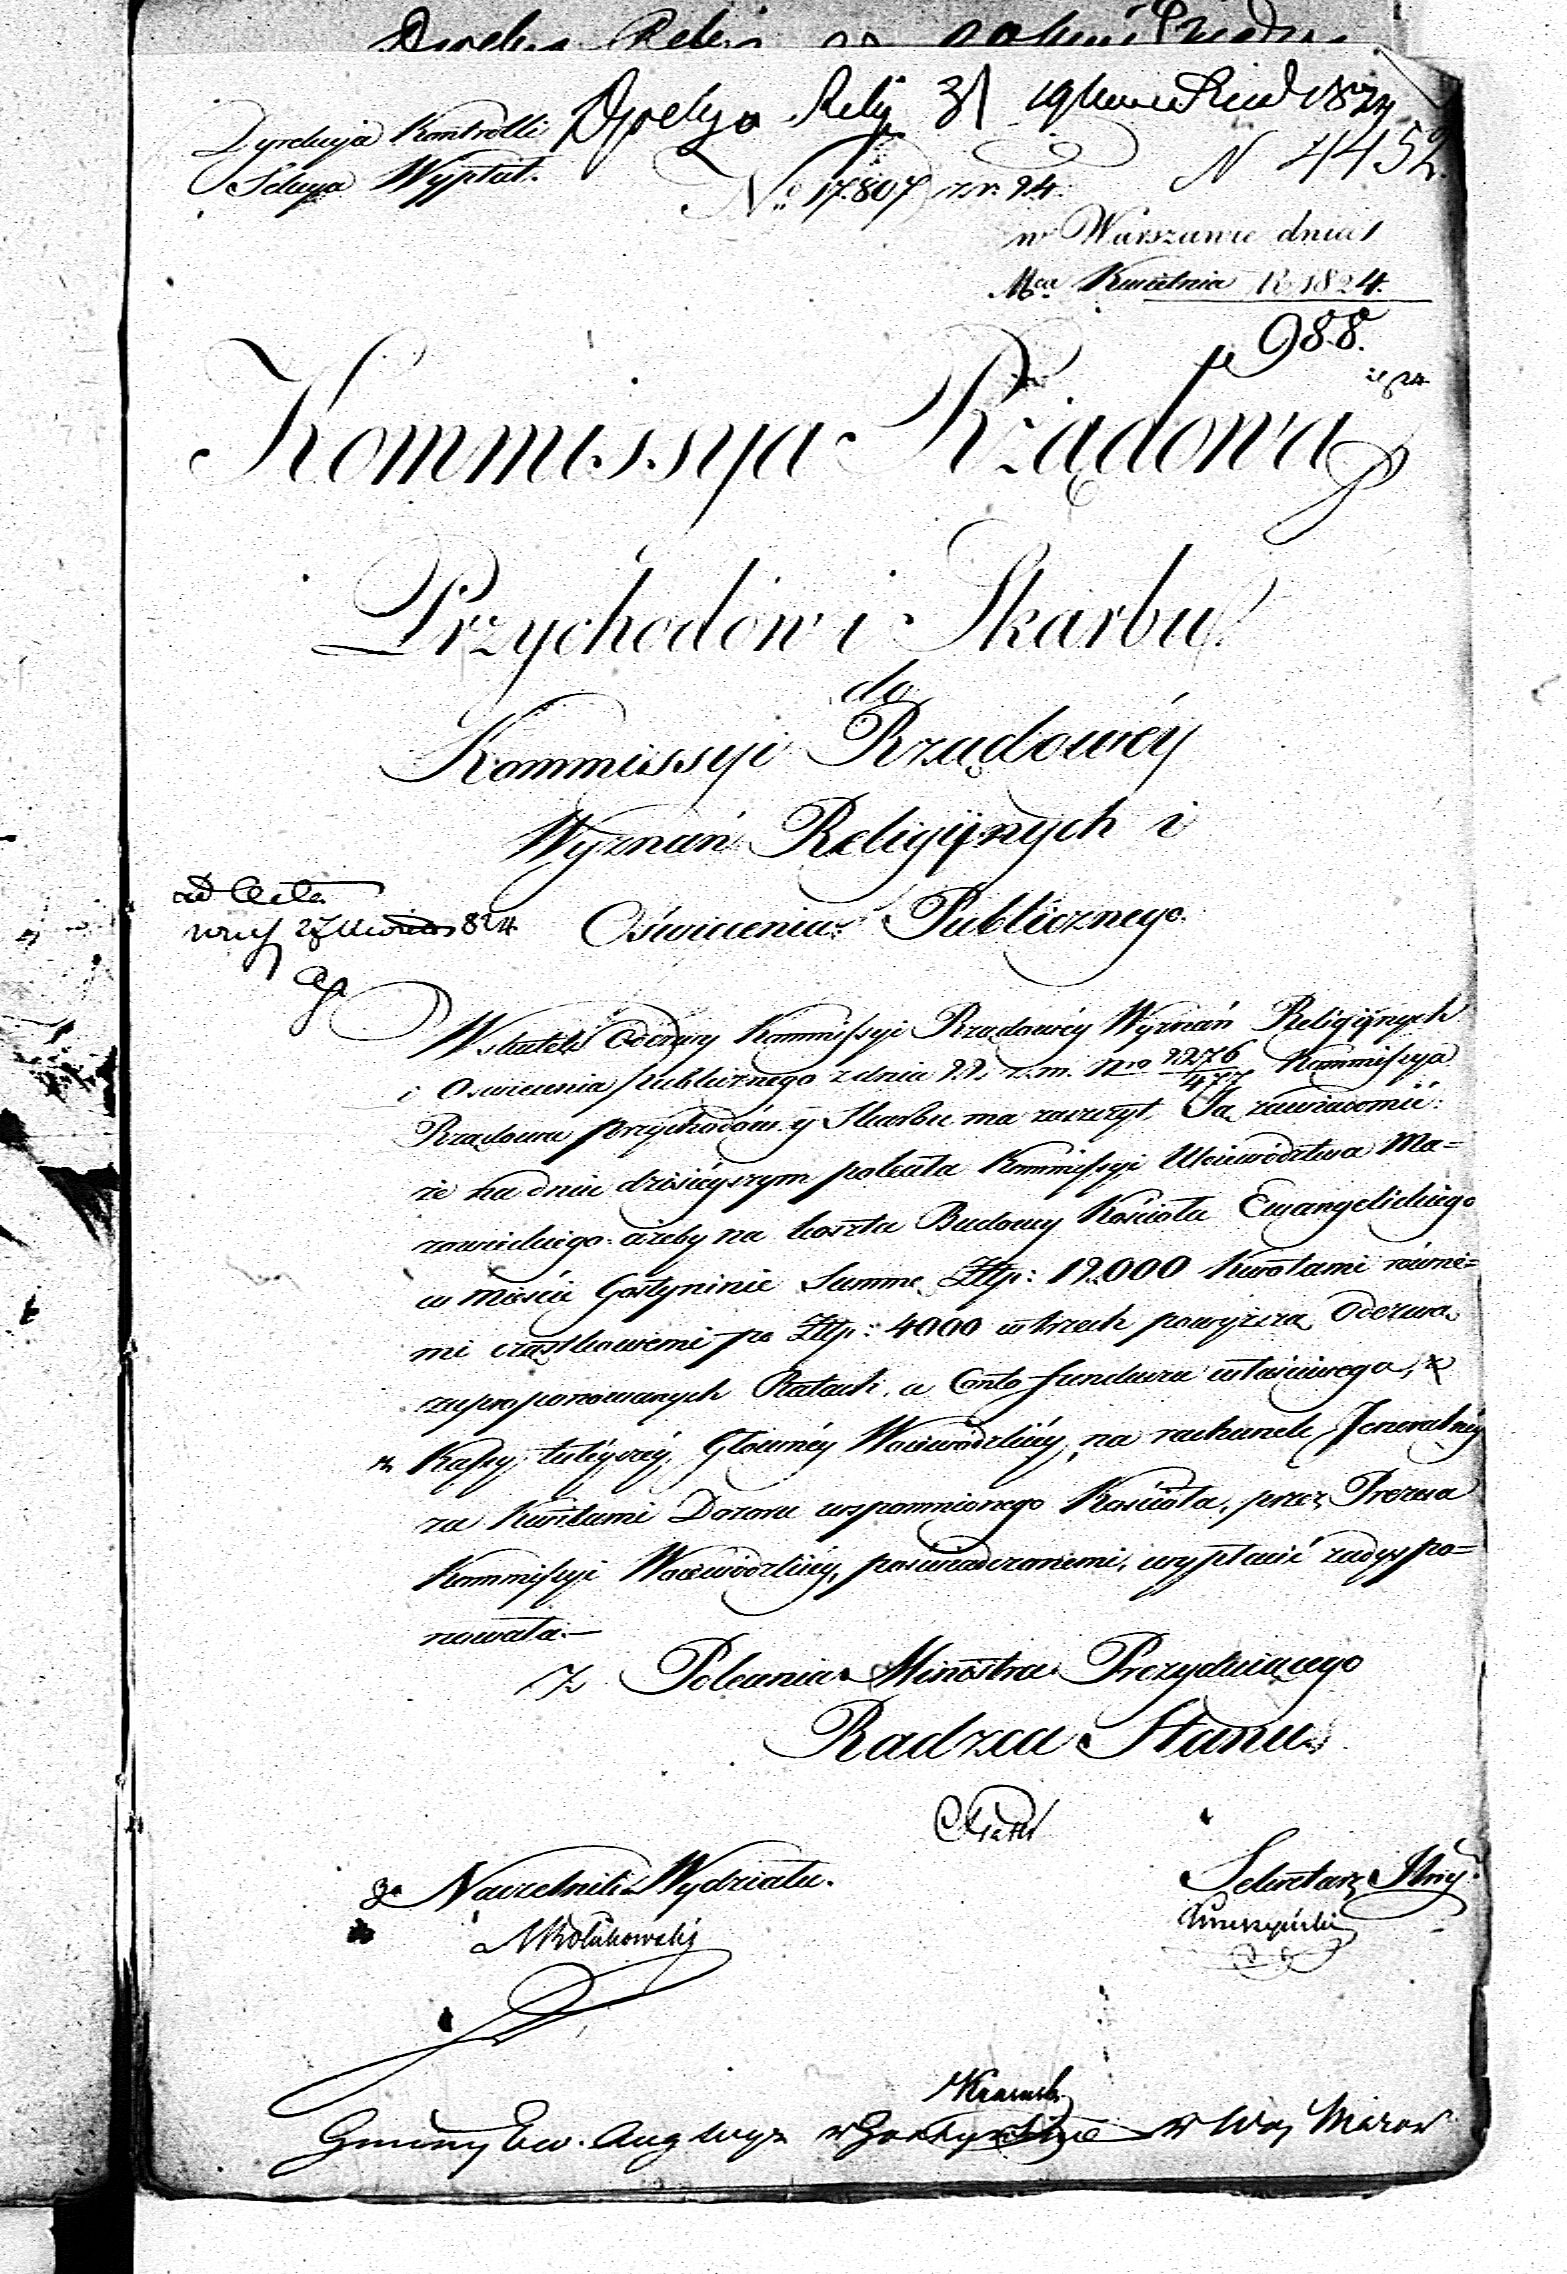 Dyrekcyja Kontrolli
Sekcya Wypłat.
N 4452.
No. 17.807 z r. 24.
w Warszawie dnia 1
Mca Kwietnia R. 1824.
988.
Kommissya Rządowa
Przychodów i Skarbu
do
Kommissyi Rządowéy
Wyznań Religijnych i
Oświecenia Publicznego.
ad Acta
824
Wskutek Odezwy Kommissyi Rządowéy Wyznań Religijnych
i Oswiecenia publicznego z dnia 22. z. m. Nro 2276/477 Kommissya
Rządowa przychodów y Skarbu ma zaszczyt Ją zawiadomić:
że na dniu dzisiéyszym poleciła Kommissyi Woiewództwa Ma=
zowieckiego. ażeby na koszta Budowy Kościoła Ewangelickiego
w mieście Gostyninie Summę Złtp: 12.000 kwotami równe=
mi cząstkowemi po Złtp: 4000 w trzech powyższą Odezwą
zaproponowanych Ratach. a Conto funduszu właściwego, z
Kassy tutéyszéy Głównéy Woiewódzkiéy, na rachunek Jeneralnéy
za Kwitami Dozoru wspomnionego Kościoła, przez Prezesa
Kommissyi Woiewódzkiéy, poświadczonemi, wypłacić zadyspo=
nowała.—
Z Polecenia Ministra Prezyduiącego
Radzca Stanu
Za Naczelnik Wydziału.
Sekretarz Jlny.
Gminy Ew. Aug wyz w Gostyninie w Woj Mazow